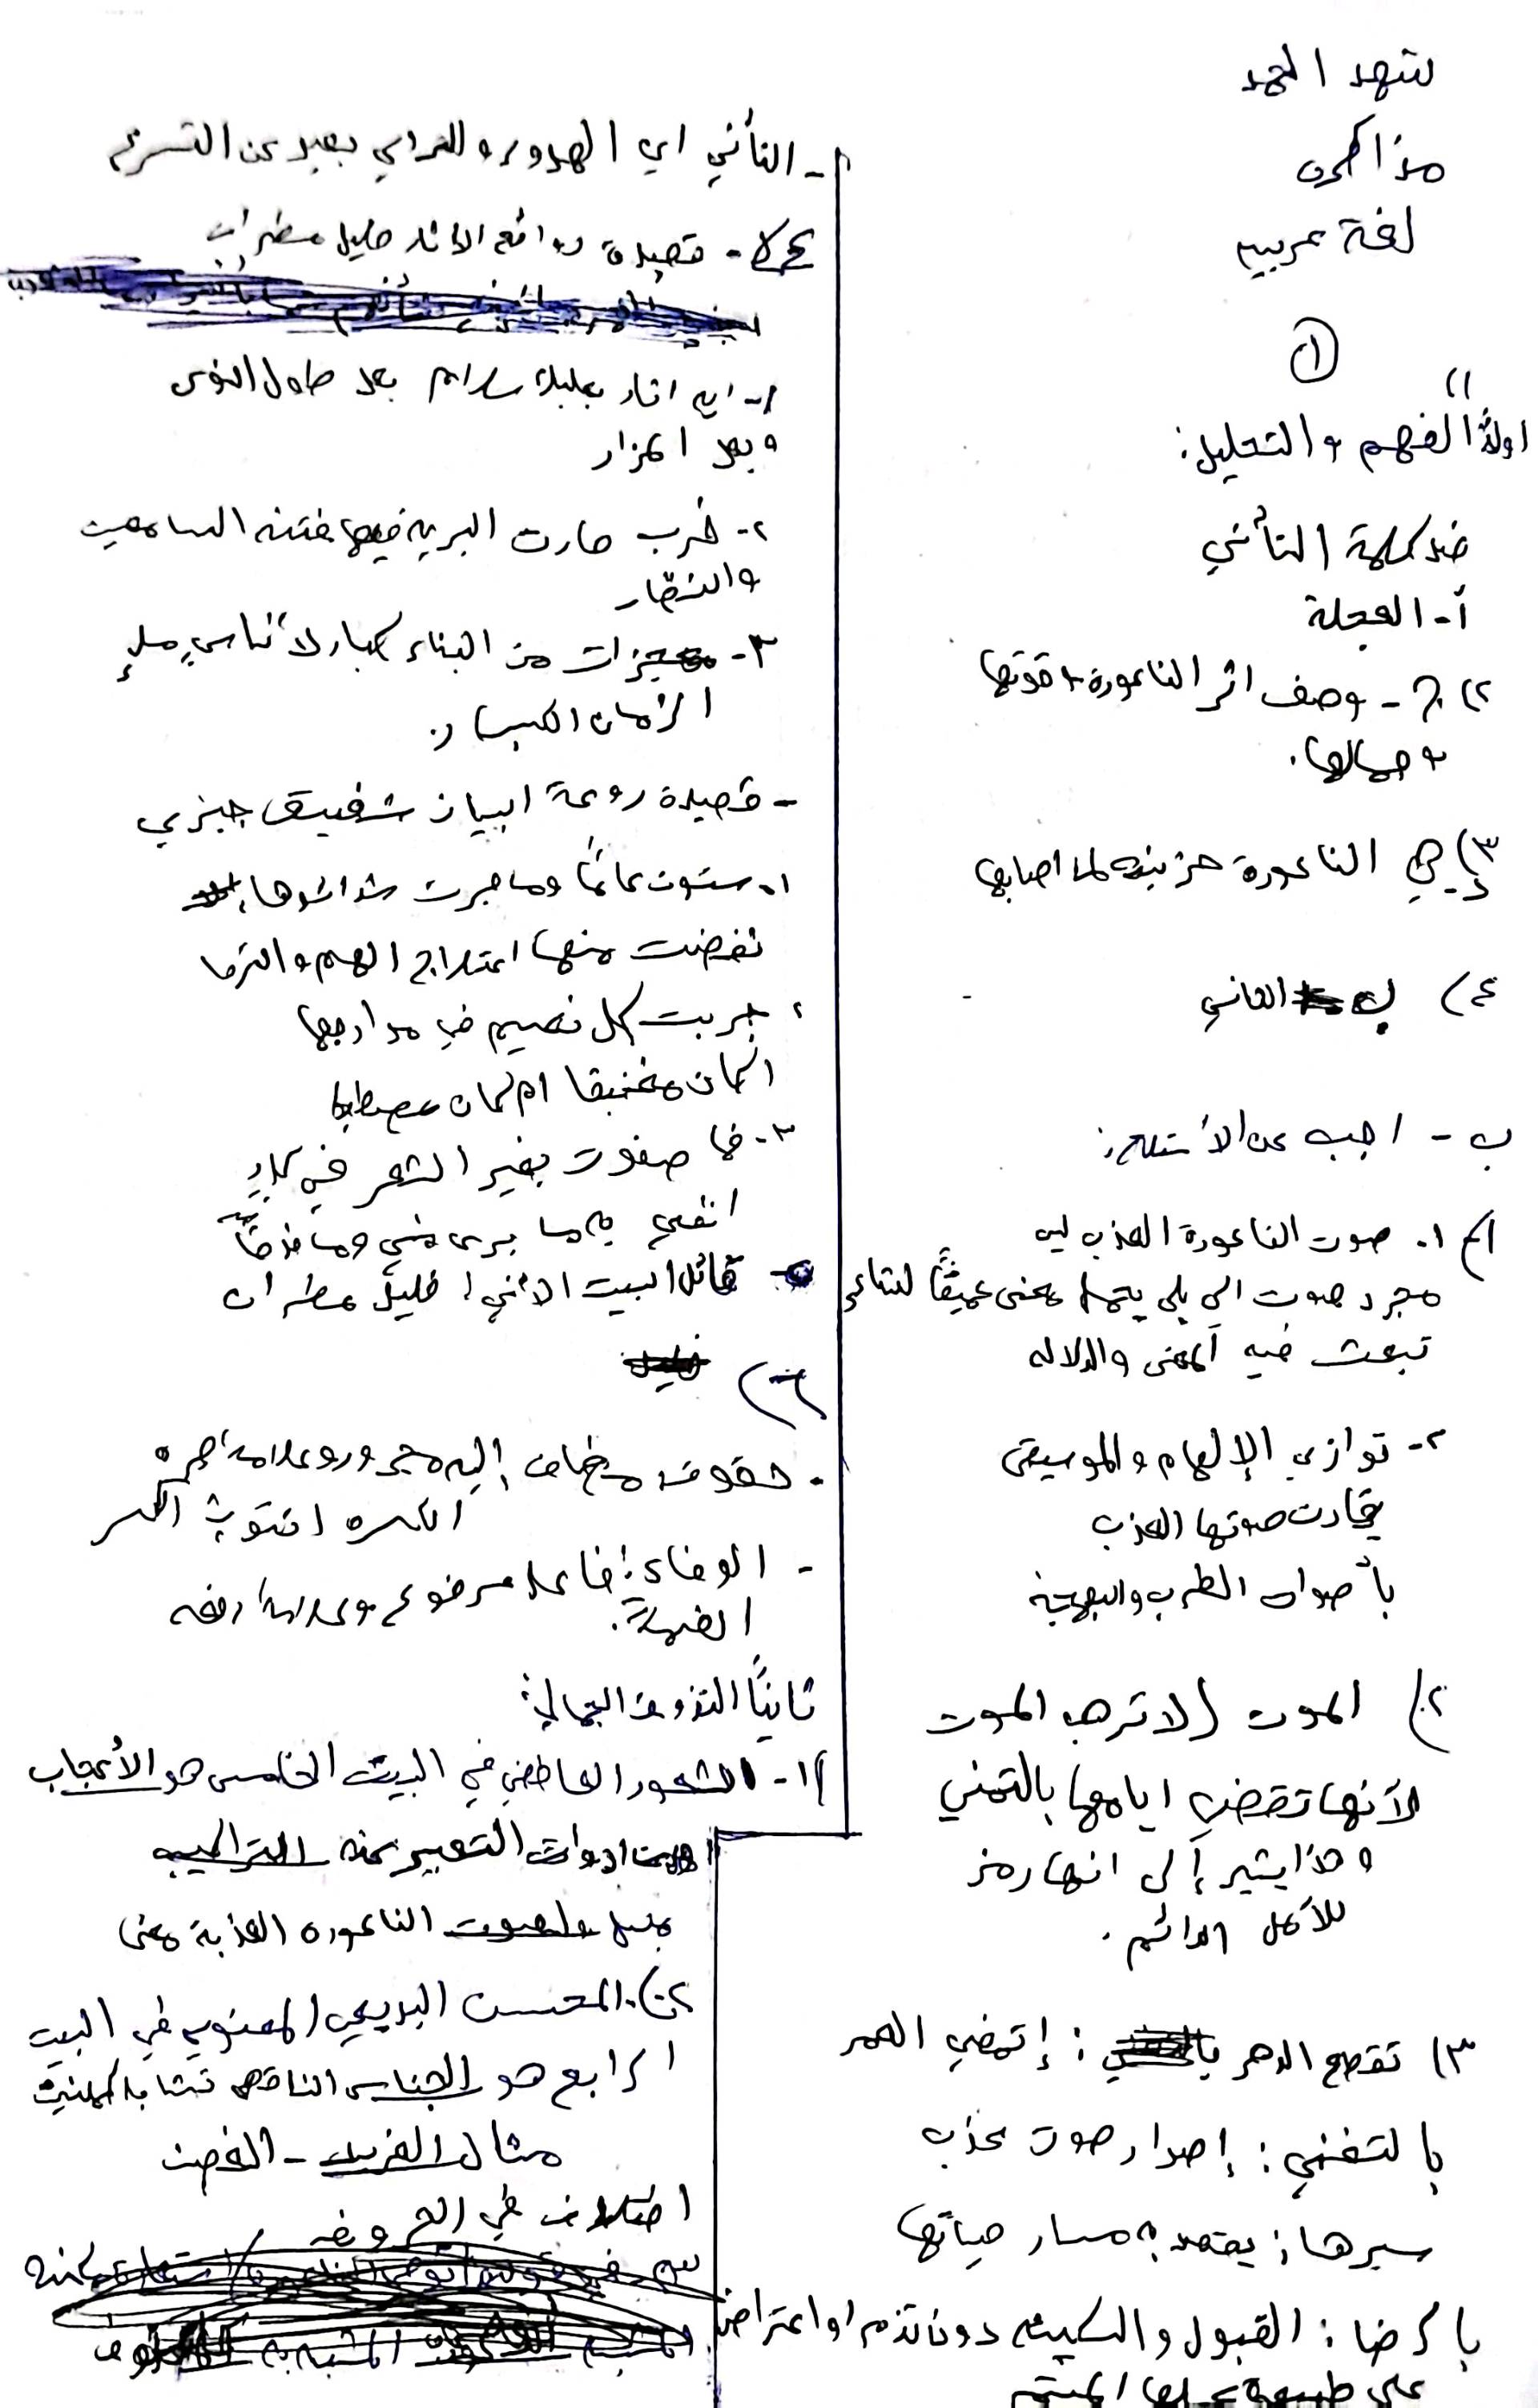 شهد الحمد
مذاكرة
لغة عربيه
١
اولاً الفهم والتحليل:
١)
ضد كلمة التأني
أ- العجلة
٢) ج - وصف اثر الناعورة وقوتها
وجمالها.
٣) د- الناعورة حزينه لما اصابها
٤) ب العاني
ب - اجب عن الأسئلة:
١. صوت الناعورة العذب ليس
مجرد صوت الي بلى يحمل معنى عميقاً للشاعر
تبعث فيه المعنى والدلاله
٢- توازي الإلهام والموسيقى
يقارن صوتها العذب
بأصوات الطرب والبهجة
٢) الموت (لا ترهب الموت
لأنها تقضي ايامها بالتمني
وهذا يشير إلى انها رمز
للأمل الدائم.
٣) تقطع الدهر : إتمضي العمر
بالتغني: إصدار صوت عذب
سيرها: يقصد به مسار حياتها
بالرضا: القبول والسكينه دون تذمر او اعتراض
على طبيعة عملها
- التأني اي الهدوء والتراخي بعيد عن التسرع
٤) - قصيدة روائع الاثار خليل مطران
١- ايه اثار بعلبك سلام بعد طول النوى
وبعد المزار
٢- خرب حارت البريه فيها فتنه السامعين
والنظار
٣- معجزات من البناء كبار لأناسٍ ملء
الزمان الكبار.
- قصيدة روعة البيان شفيق جبري
١. ستون عاماً وما جرت شدائدها
نفضت منها اعتلاج الهم والترحا
٢ جربت كل نعيم في مدارجها
اكان مغتبقا ام كان مصطبحا
٣- فما صفوت بغير الشعر في كدرٍ
انفي به ما برى مني وما قدحا
- قائل البيت الأتي: خليل مطران
٦)
- حقوق مضاف إليه مجرور وعلامة جره
الكسره تنوين الكسر
- الوفاء: فاعل مرفوع وعلامة رفعه
الضمة.
ثانياً التذوق الجمالي:
١)١- الشعور العاطفي في البيت الخامس هو الأعجاب
من ادوات التعبير عنه التراكيب
مثل لصوت الناعوره العذبة معنى
٢). المحسن البديعي المعنوي في البيت
الرابع هو الجناس الناقص تشابه كلمتين
مثال الغريب - الغصن
اختلاف في الحروف